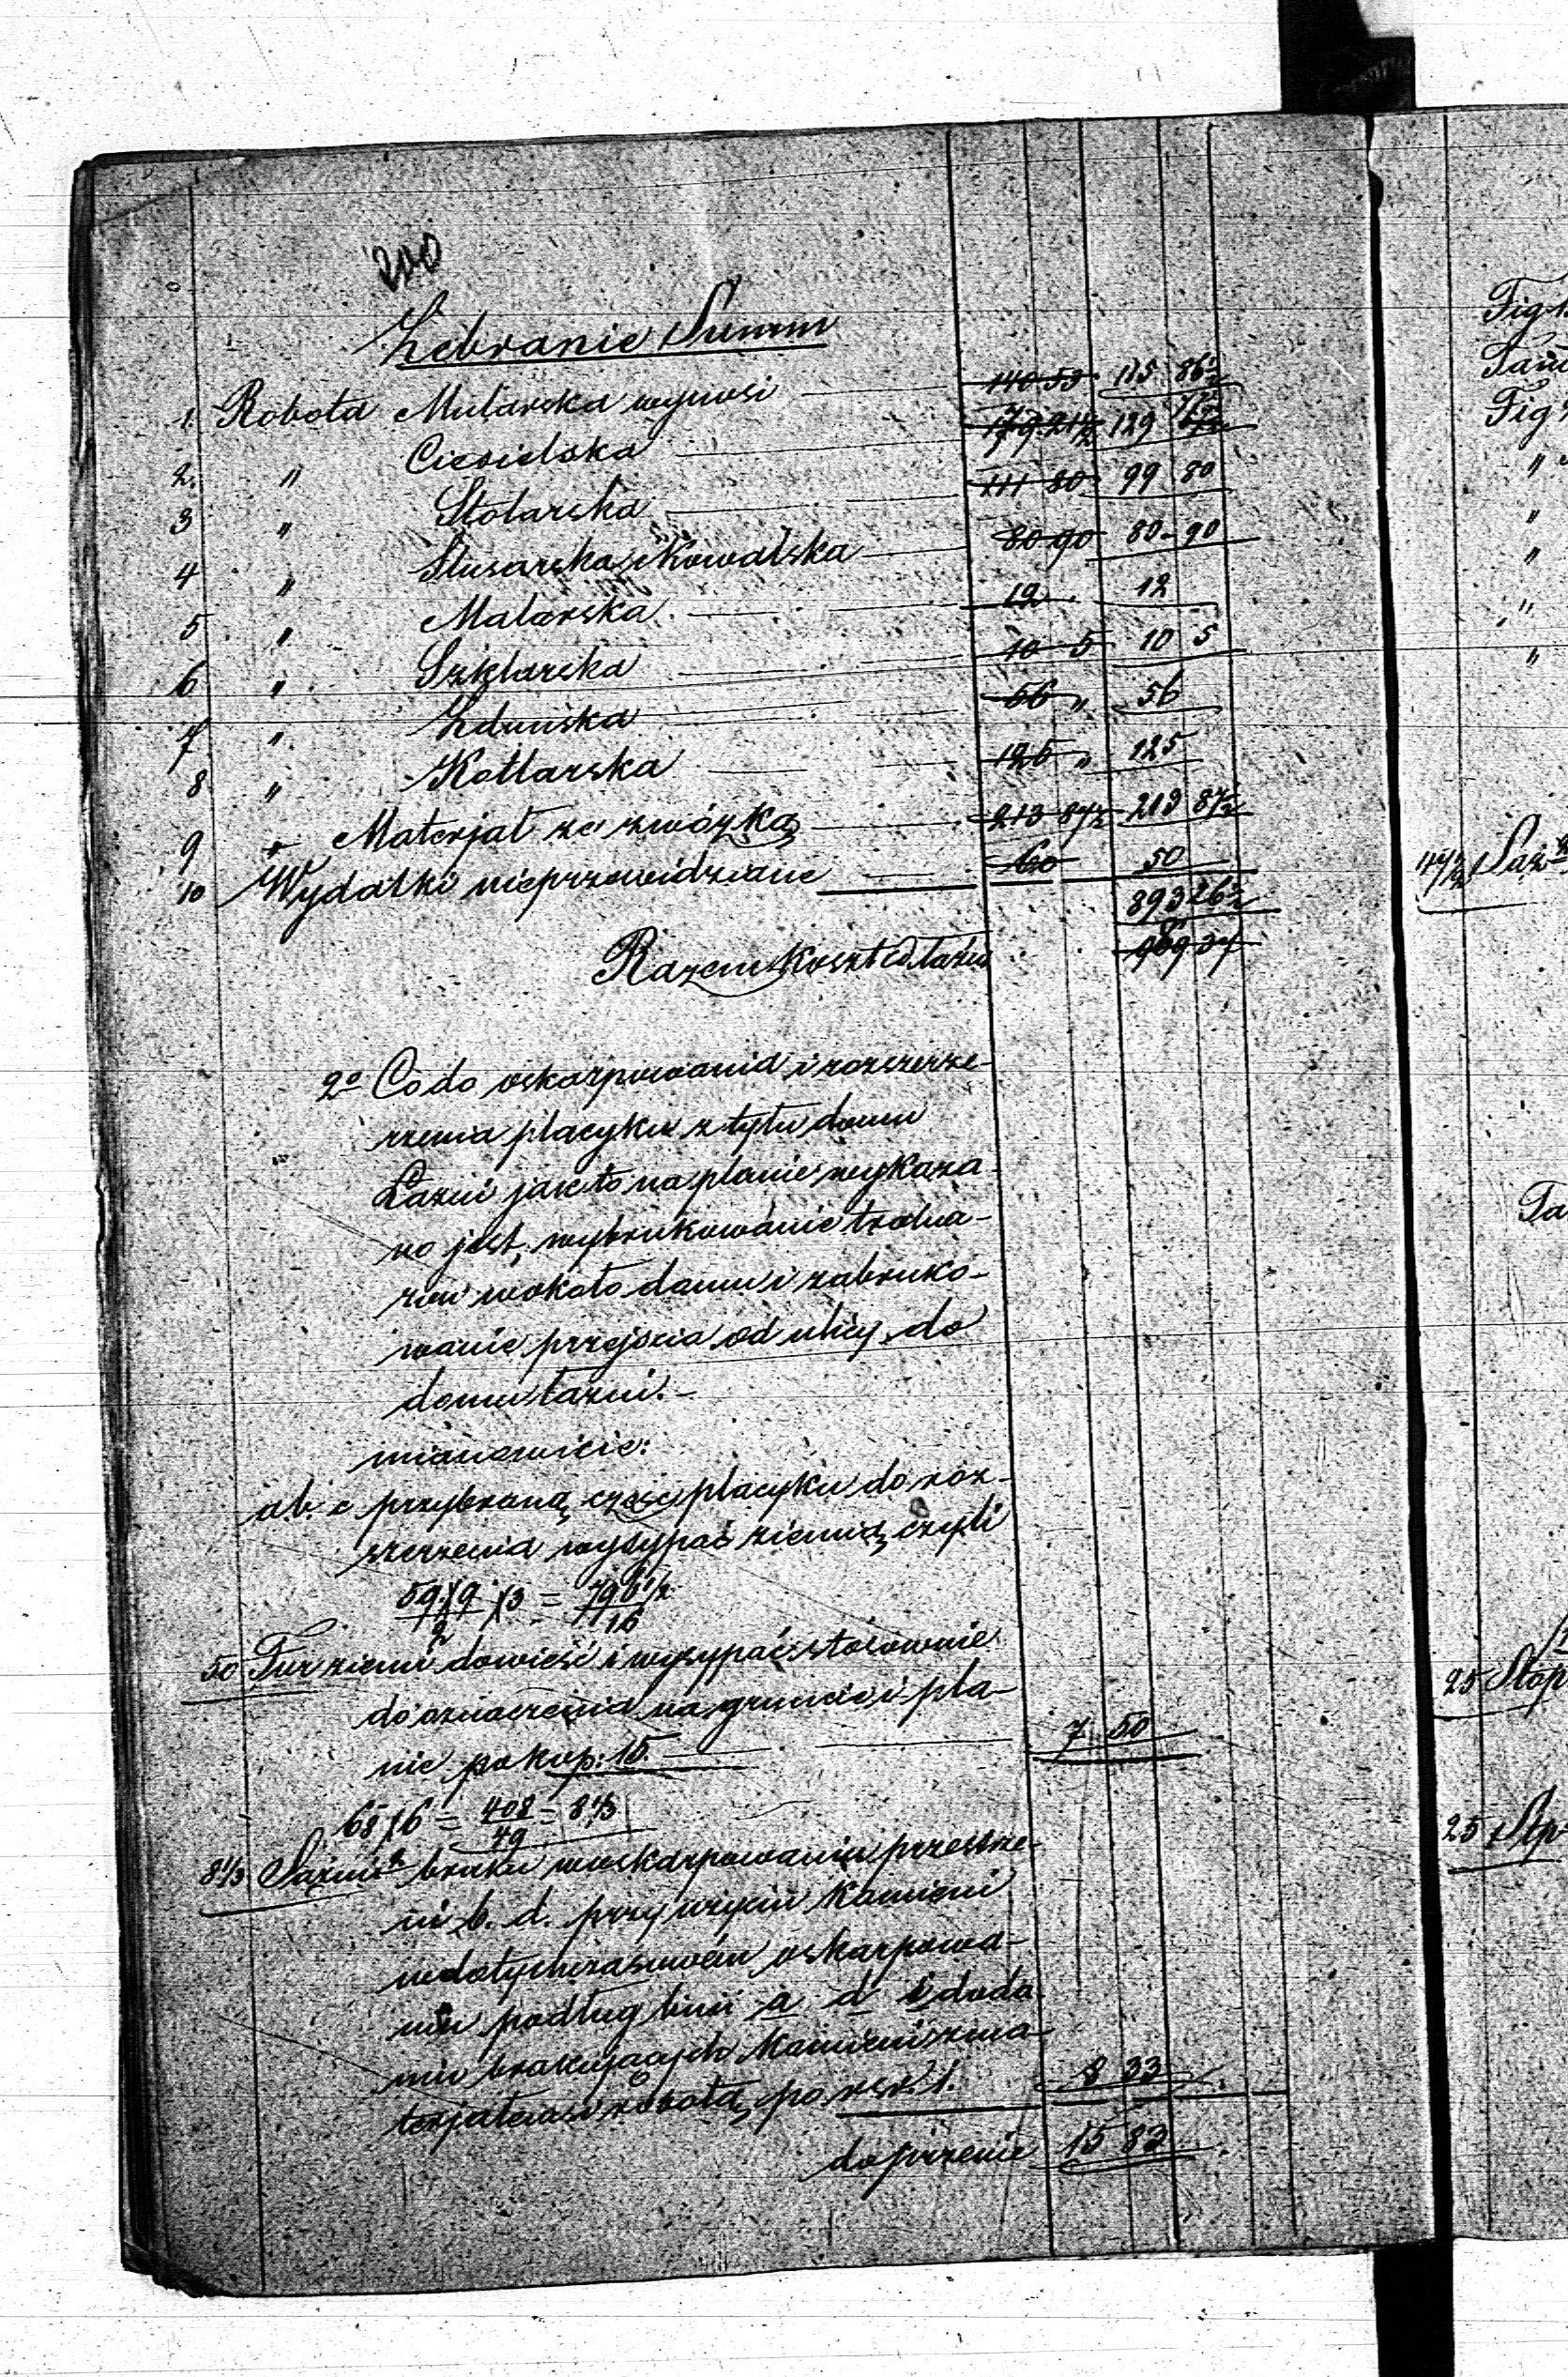 200
Zebranie Summ
1. Robota Mularska wynosi 140 53 115 86½
2. " Ciesielska 179 21½ 129 77½
3 " Stolarska 111 80 99 80
4 " Slusarska i Kowalska 80 90 80 - 90
5 " Malarska 12 12
6 " Szklarska 10 5 10 5
7 " Zduńska 56 " 56
8 " Kotlarska 125 " 125
9 " Materjał ze zwózką 213 87½ 213 87½
10 Wydatki nieprzewidziane 60 50
893 26½
Razem koszt d. Łaźni 989 37
2º Co do oskarpowania i rozszerze-
rzenia placyku z tyłu domu
Łazni jak to na planie wykaza-
no jest, wybrukowanie trotua-
rów wokoło domu i zabruko-
wanie przejscia od ulicy do
domu łazni. -
mianowicie:
a.b.c przybraną częsć placyku do roz-
szerzenia wysypać ziemią czyli
59 x 9 / 2 x 3 = 796½ / 16
50 Fur ziemi dowieść i wysypać stosownie
do oznaczenia na gruncie i pla-
nie po kop: 15. 7 50
68 x 6 = 408 / 49 = 8⅓
8⅓ Sążni bruku w oskarpowaniu przestrze-
ni b. d. przy użyciu kamieni
w dotychczasowém oskarpowa-
niu podług linii a d i doda-
niu brakujących kamieni z ma-
terjałem i robotą po rsr. 1. 8 33
do przenie 15 83
Fig
Fig
"
"
"
"
"
25 Stóp
25 Stp